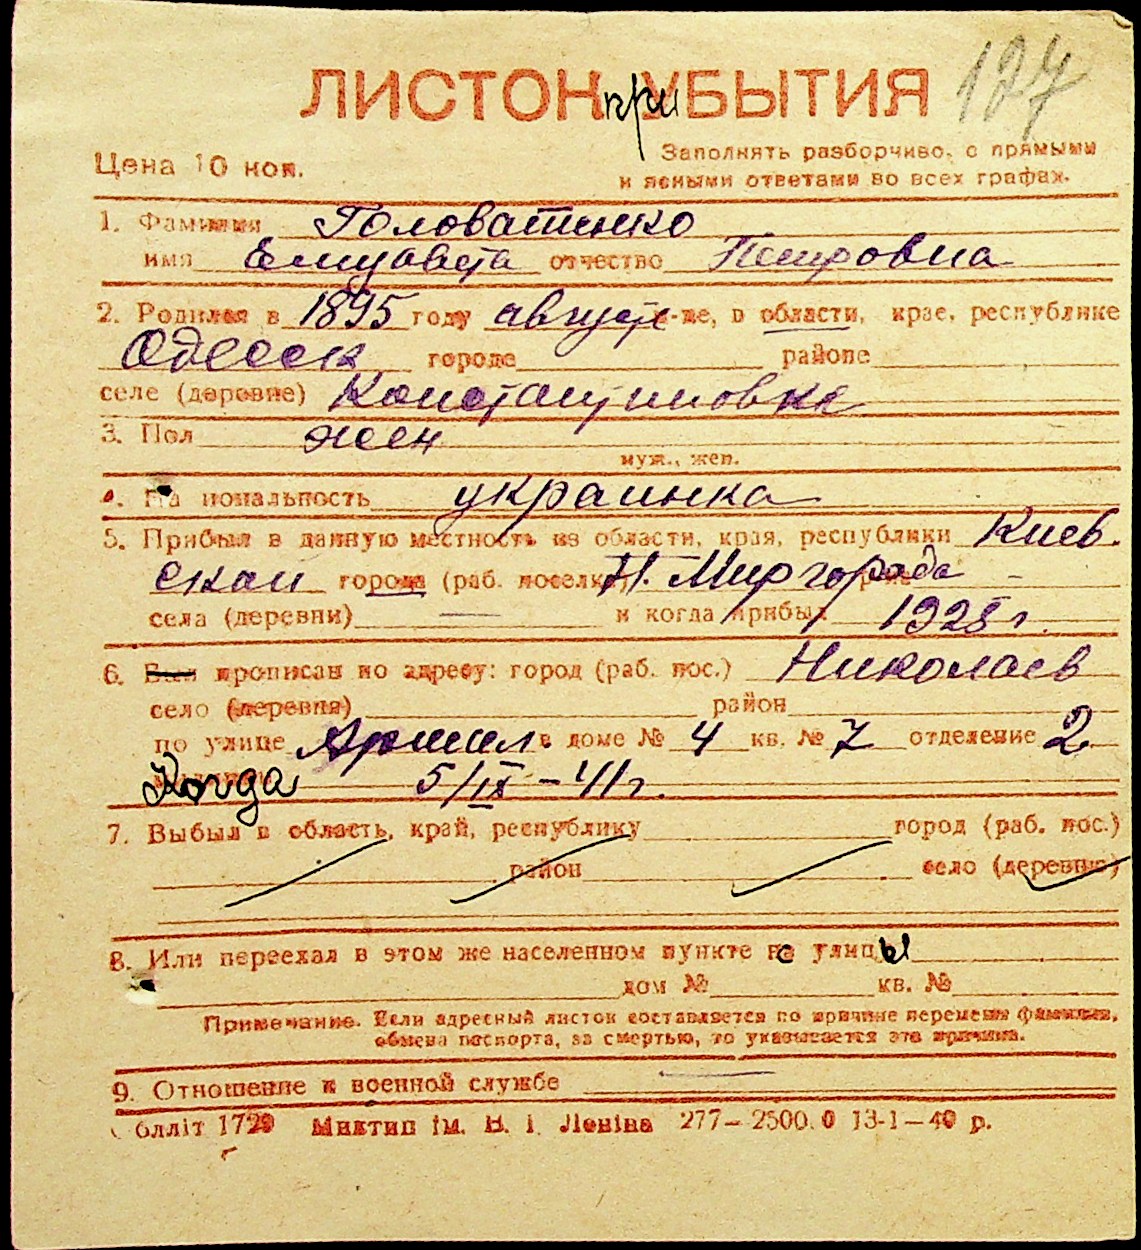 127
ЛИСТОК при УБЫТИЯ
Цена 10 коп.
Заполнять разборчиво, с прямыми
и ясными ответами во всех графах.
1. Фамилия Головатенко
имя Елизавета отчество Петровна
2. Родился в 1895 году августе м-це, в области, крае, республике
Одесск городе районе
селе (деревне) Константиновке
3. Пол жен
муж., жен.
4. Национальность украинка
5. Прибыл в данную местность из области, края, республики Киев.
ской города (раб. поселка) Н. Миргорода
села (деревни) — и когда прибыл 1928 г.
6. Был прописан по адресу: город (раб. пос.) Николаев
село (деревня) район
по улице в доме № 4 кв. № 7 отделение 2
Когда 5/IX – 41 г.
7. Выбыл в область, край, республику город (раб. пос.)
район село (деревню)
8. Или переехал в этом же населенном пункте с улицы
дом № кв. №
Примечание. Если адресный листок составляется по причине перемены фамилии,
обмена паспорта, за смертью, то указывается эта причина.
9. Отношение к военной службе —
Облліт 1729 Миктип ім. В. І. Леніна 277–2500.0 13-1–40 р.